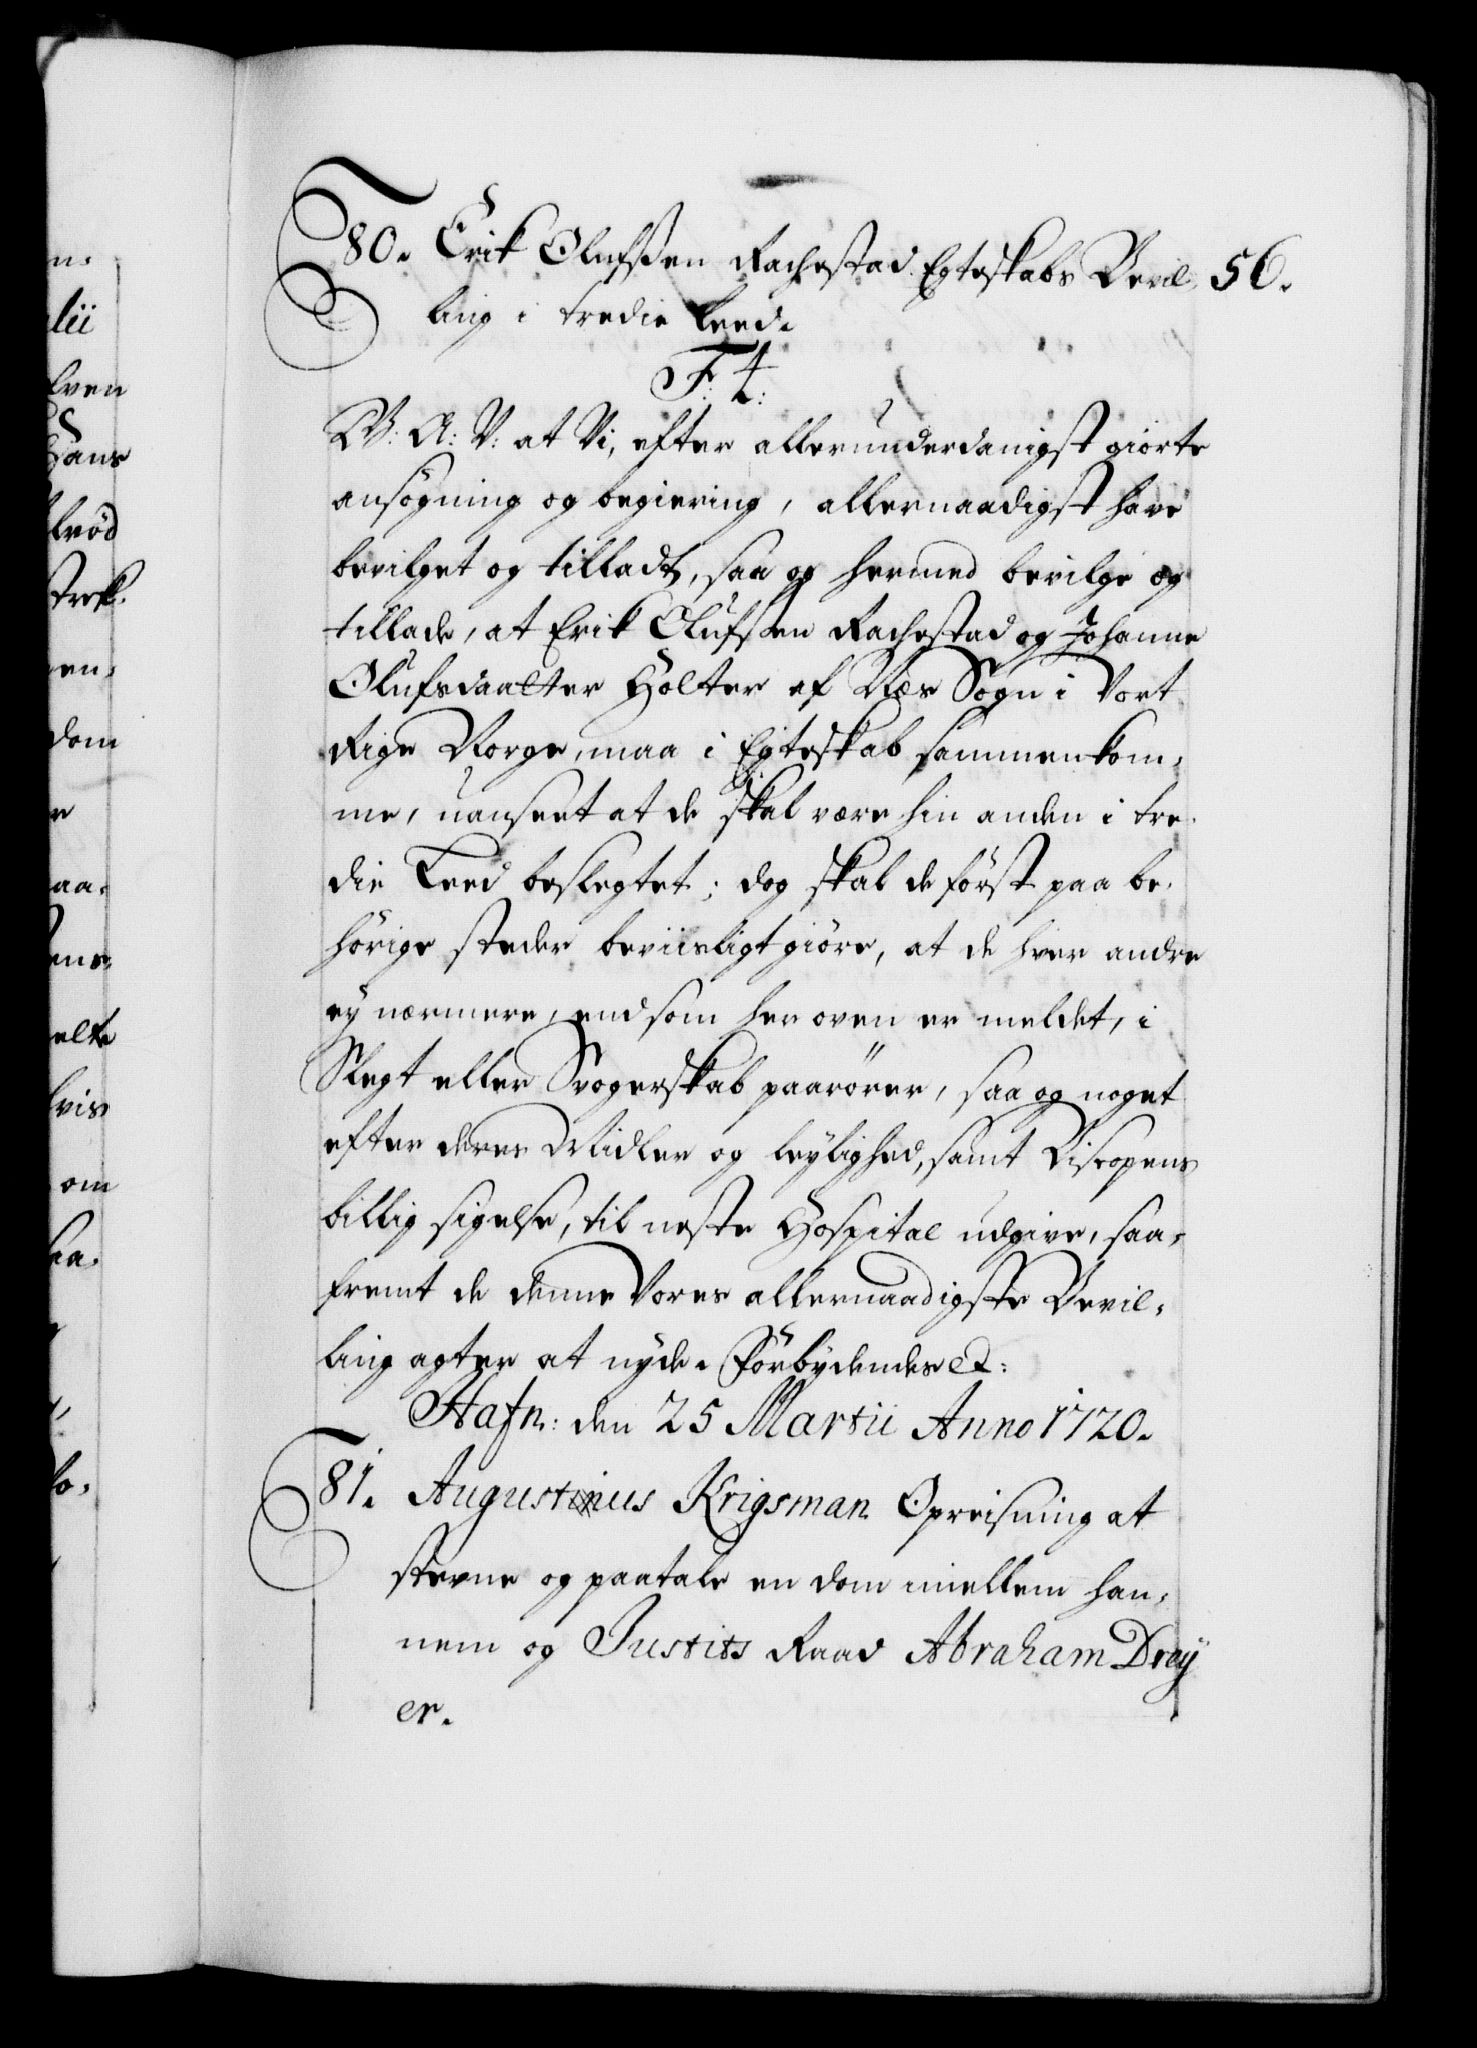 80. Erik Olufsßen Rachestad Egteskabs Bevil- 56.
ling i tredie Leed.
F. 4.
W: A: V: at Vi, efter allerunderdanigst giorte
ansögning og begiering, allernaadigst have
bevilget og tilladt, saa og hermed bevilge og
tillade, at Erik Olufsßen Rachestad og Johanne
Olufsdaatter Holter af Næs Sogn i Vort
Rige Norge, maa i Egteskab sammenkom-
me, uanseet at de skal være hin anden i tre-
die Leed beslegtet; dog skal de först paa be-
hörige steder beviisligt giöre, at de hver andre
ey nærmere, end som her oven er meldet, i
Slegt eller Svogerskab paarörer, saa og noget
efter deres Midler og leylighed, samt Biscopens
billig sigelse, til neste Hospital udgive, saa-
fremt de denne Vores allernaadigste Bevil-
ling agter at nyde. Forbydendes etc:
Hafn: den 25 Martii Anno 1720.
81. Augustinus Krigsman Opreisning at
stevne og paatale en dom imellem han-
nem og Justits Raad Abraham Drey
er.
n.
lii
Even
Hans
lröd
strek.
en.
dom
r
aa.
ens.
elte
hvis
om
aa.
lo.